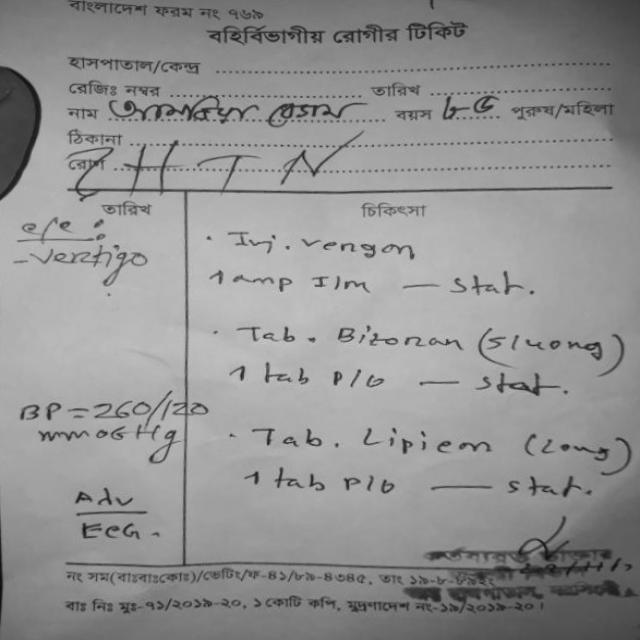 বাংলাদেশ ফরম নং ৭৬৯
বহির্বিভাগীয় রোগীর টিকিট
হাসপাতাল/কেন্দ্র
রেজিঃ নম্বর তারিখ
নাম বেগম বয়স ৮৫ পুরুষ/মহিলা
ঠিকানা
রোগ HTN
তারিখ চিকিৎসা
c/c :
- vertigo
· Inj. vergon
1 amp I/m — stat.
· Tab. Bizoran (5/40mg)
1 tab P/O — stat.
BP = 260/120
mm of Hg
· Tab. Lipicon (20mg)
1 tab P/O — stat.
Adv
ECG.
নং সম(বাঃবাঃকোঃ)/ভেটিং/ফ-৪১/৮৯-৪৩৪৫, তাং
বাঃ নিঃ মুঃ-৭১/২০১৯-২০, ১ কোটি কপি, মুদ্রণাদেশ নং-১৯/২০১৯-২০।